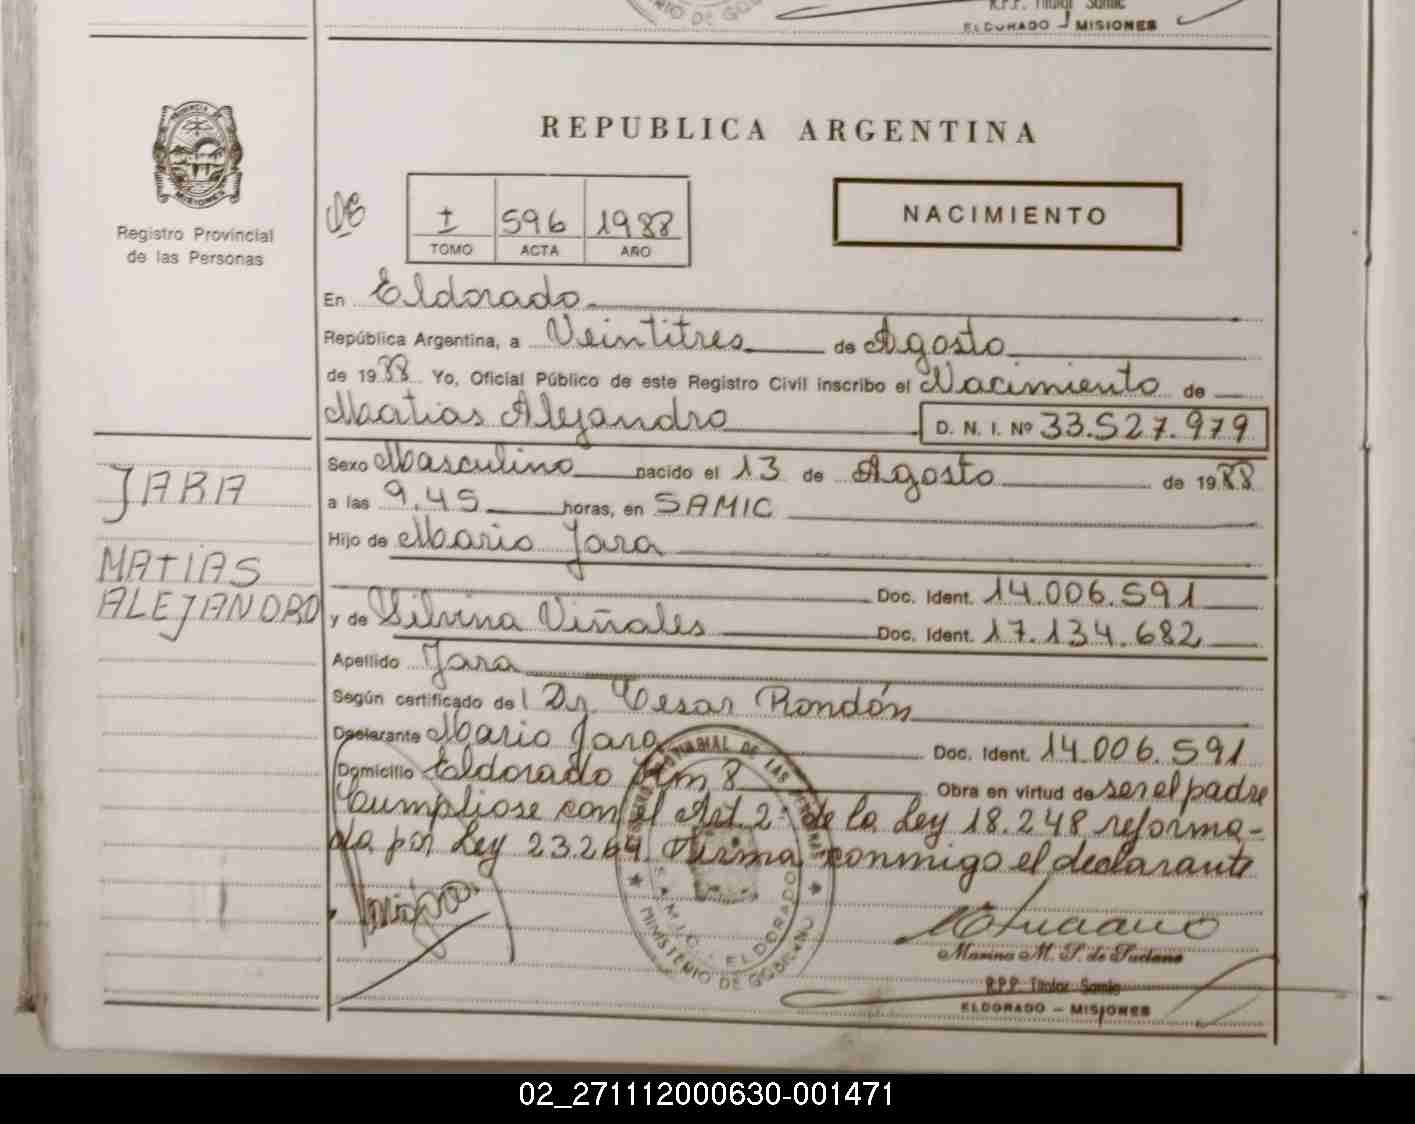 R.P.P. Titular Samic
ELDORADO - MISIONES
REPUBLICA ARGENTINA
PROVINCIA DE
MISIONES
Registro Provincial
de las Personas
I 596 1988
TOMO ACTA AÑO
NACIMIENTO
En Eldorado
República Argentina, a Veintitres de Agosto
de 1988 Yo, Oficial Público de este Registro Civil inscribo el Nacimiento de
Matias Alejandro D. N. I. Nº 33.527.979
Sexo Masculino nacido el 13 de Agosto de 1988
a las 9.45 horas, en SAMIC
Hijo de Mario Jara
Doc. Ident. 14.006.591
y de Silvina Viñales Doc. Ident. 17.134.682
Apellido Jara
Según certificado del Dr. Cesar Rondón
Declarante Mario Jara Doc. Ident. 14.006.591
Domicilio Eldorado Km 8 Obra en virtud de ser el padre
Cumpliose con el Art. 2º de la Ley 18.248 reforma-
da por Ley 23.264. Firma conmigo el declarante
JARA
MATIAS
ALEJANDRO
DE LAS PERSONAS
S.A.M.I.C. - ELDORADO
MINISTERIO DE GOBIERNO
R.P.P. Titular Samic
ELDORADO - MISIONES
02_271112000630-001471